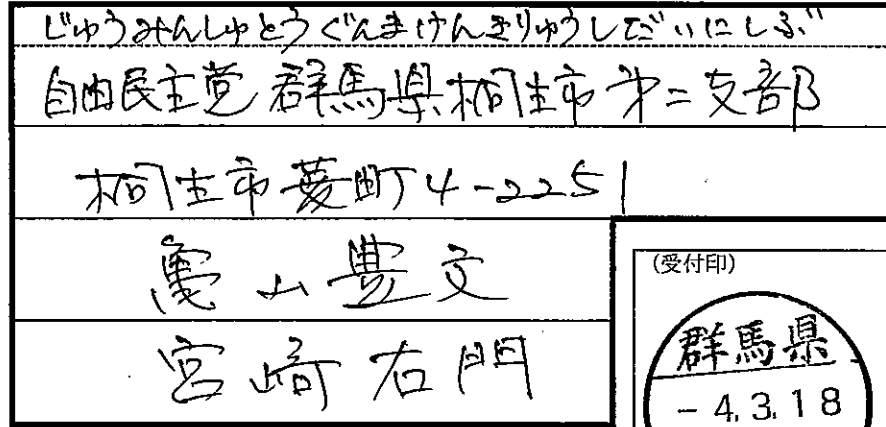 じゆうみんしゅとうぐんまけんきりゅうしだいにしぶ
自由民主党群馬県桐生市第二支部
桐生市菱町4-2251
亀山豊文
宮崎右門
(受付印)
群馬県
-4.3.18